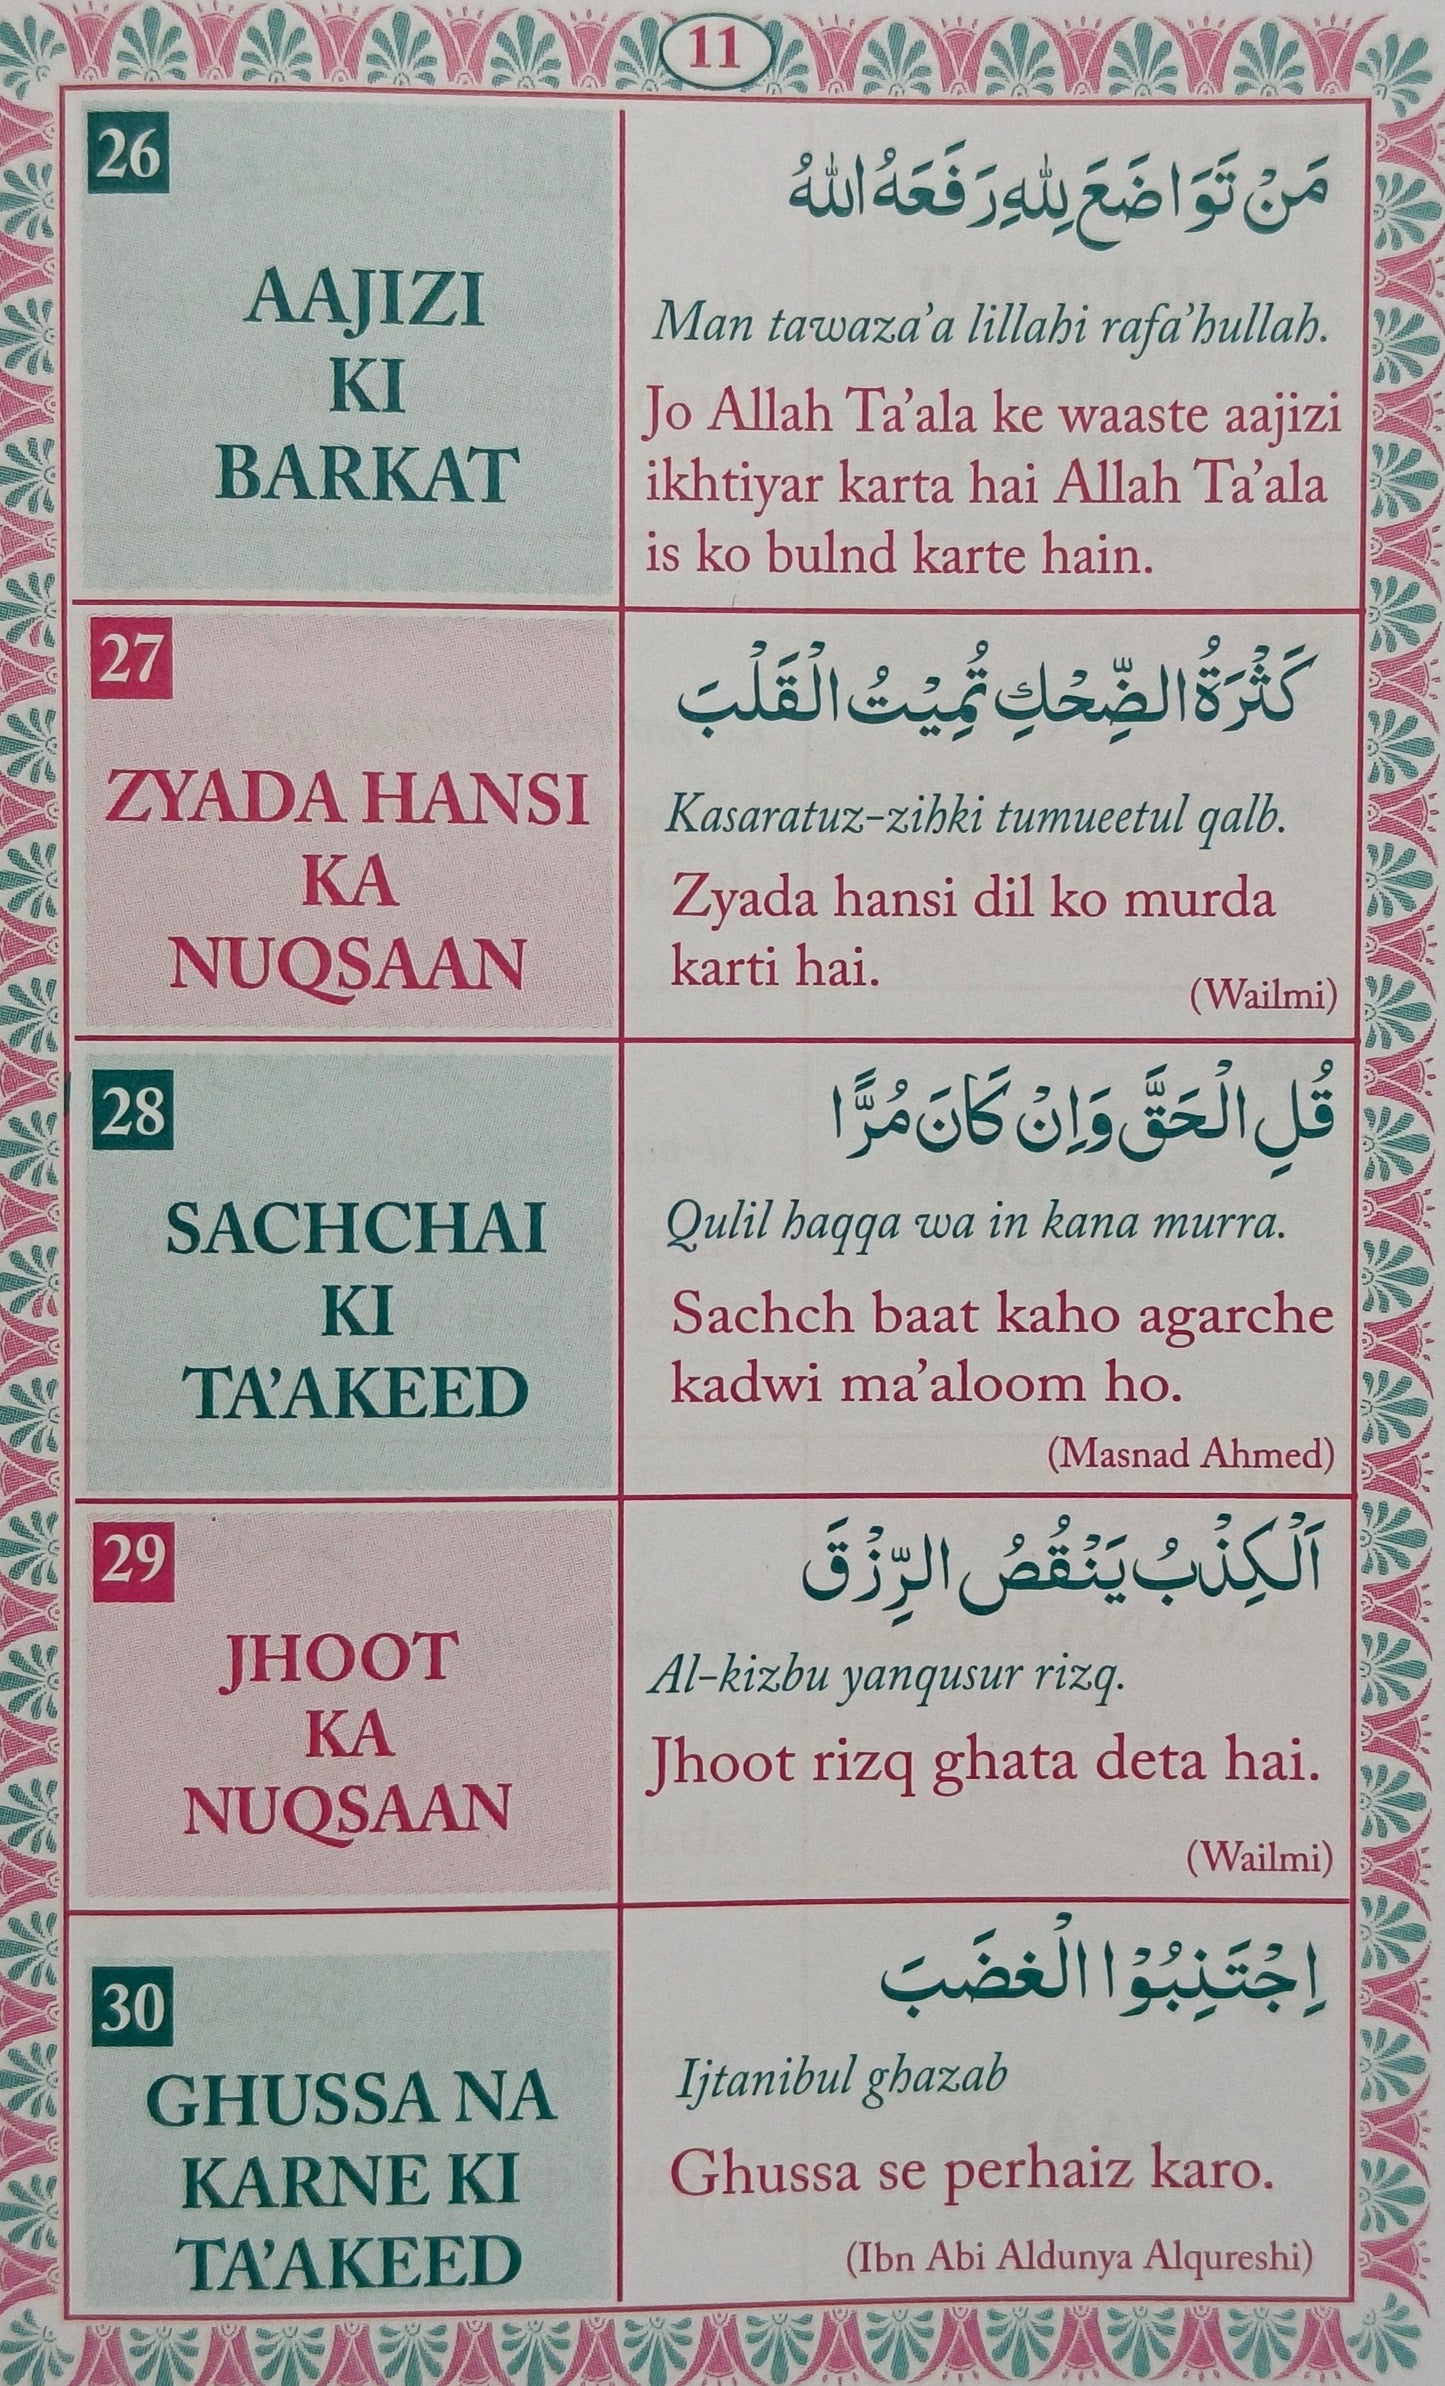 11
26
AAJIZI
KI
BARKAT
مَنْ تَوَاضَعَ لِلّٰهِ رَفَعَهُ اللّٰهُ
Man tawaza’a lillahi rafa’hullah.
Jo Allah Ta’ala ke waaste aajizi
ikhtiyar karta hai Allah Ta’ala
is ko bulnd karte hain.
27
ZYADA HANSI
KA
NUQSAAN
كَثْرَةُ الضِّحْكِ تُمِيْتُ الْقَلْبَ
Kasaratuz-zihki tumueetul qalb.
Zyada hansi dil ko murda
karti hai.
(Wailmi)
28
SACHCHAI
KI
TA’AKEED
قُلِ الْحَقَّ وَاِنْ كَانَ مُرًّا
Qulil haqqa wa in kana murra.
Sachch baat kaho agarche
kadwi ma’aloom ho.
(Masnad Ahmed)
29
JHOOT
KA
NUQSAAN
اَلْكِذْبُ يَنْقُصُ الرِّزْقَ
Al-kizbu yanqusur rizq.
Jhoot rizq ghata deta hai.
(Wailmi)
30
GHUSSA NA
KARNE KI
TA’AKEED
اِجْتَنِبُوْا الْغضَبَ
Ijtanibul ghazab
Ghussa se perhaiz karo.
(Ibn Abi Aldunya Alqureshi)